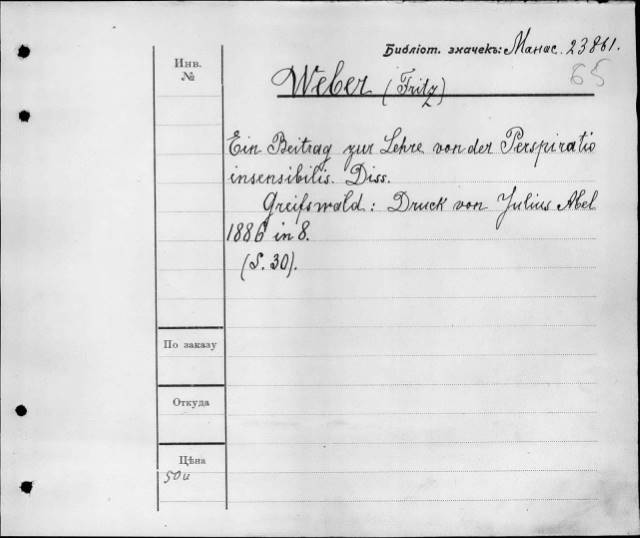 Библіот. значекъ: Манас. 23861.
65
Инв.
№
Weber (Fritz)
Ein Beitrag zur Lehre von der Perspiratio
insensibilis. Diss.
Greifswald: Druck von Julius Abel
1886 in 8.
(S. 30).
По заказу
Откуда
Цѣна